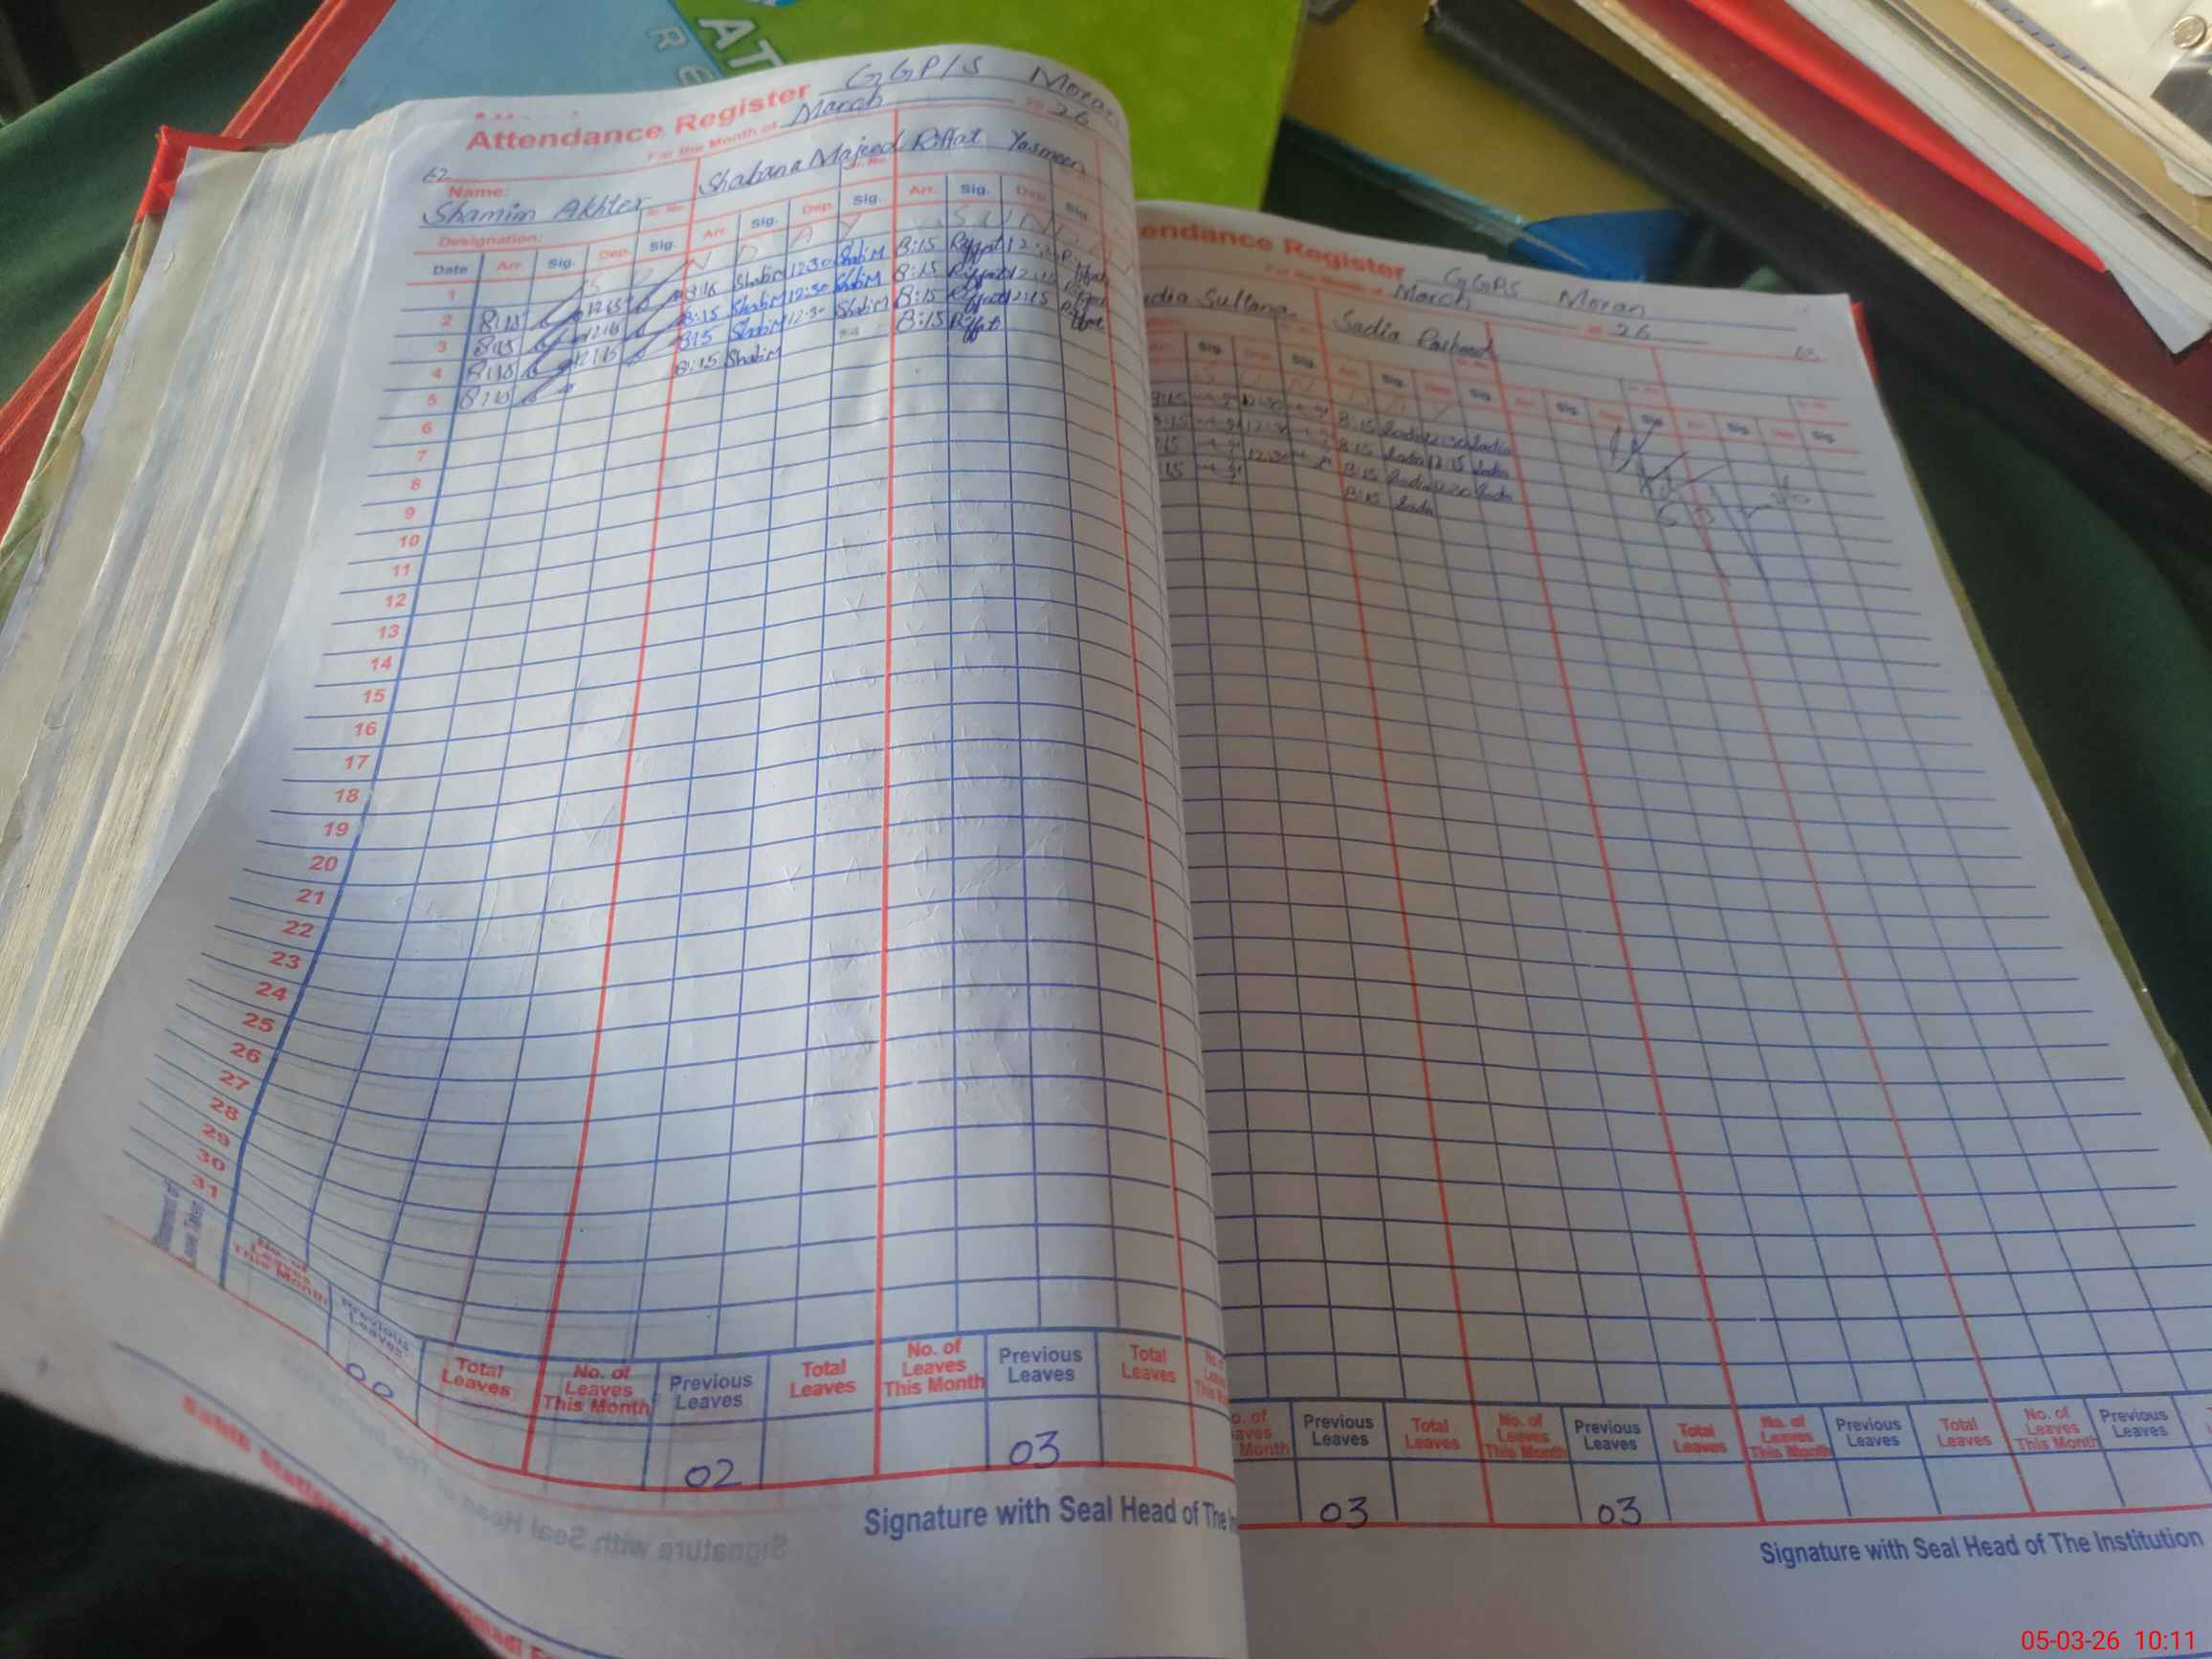 AT
RE
Attendance Register GGP/S Moran
For the Month of March 2026
62
Name:
Shamim Akhter Shabana Majeed Riffat Yasmeen
Designation:
Date Arr. Sig. Dep. Sig. Arr. Sig. Dep. Sig. Arr. Sig. Dep. Sig.
1 S U N D A Y S U N
2 8:15 8:15 Shabim 12:30 Shabim 8:15 Riffat
3 8:15 12:15 8:15 Shabim 12:30 Shabim 8:15 Riffat 12:15 Riffat
4 8:15 12:15 8:15 Shabim 12:30 Shabim 8:15 Riffat 12:15 Riffat
5 8:15 8:15 Shabim 8:15 Riffat
6
7
8
9
10
11
12
13
14
15
16
17
18
19
20
21
22
23
24
25
26
27
28
29
30
31
No. of Leaves This Month Previous Leaves Total Leaves No. of Leaves This Month Previous Leaves Total Leaves No. of Leaves This Month Previous Leaves Total Leaves
00 02 03
Signature with Seal Head of The
endance Register GGPS Moran
March 26
63
dia Sultana Sadia Rasheed
Sig. Dep. Sig. Arr. Sig. Dep. Sig. Arr. Sig. Dep. Sig. Arr. Sig. Dep. Sig.
S U N D A Y
8:15 12:30 8:15 Sadia 12:30 Sadia
8:15 12:30 8:15 Sadia 12:15 Sadia
15 12:30 8:15 Sadia 12:30 Sadia
15 8:15 Sadia
Previous Leaves Total Leaves No. of Leaves This Month Previous Leaves Total Leaves No. of Leaves This Month Previous Leaves Total Leaves No. of Leaves This Month Previous Leaves
03 03
Signature with Seal Head of The Institution
05-03-26 10:11